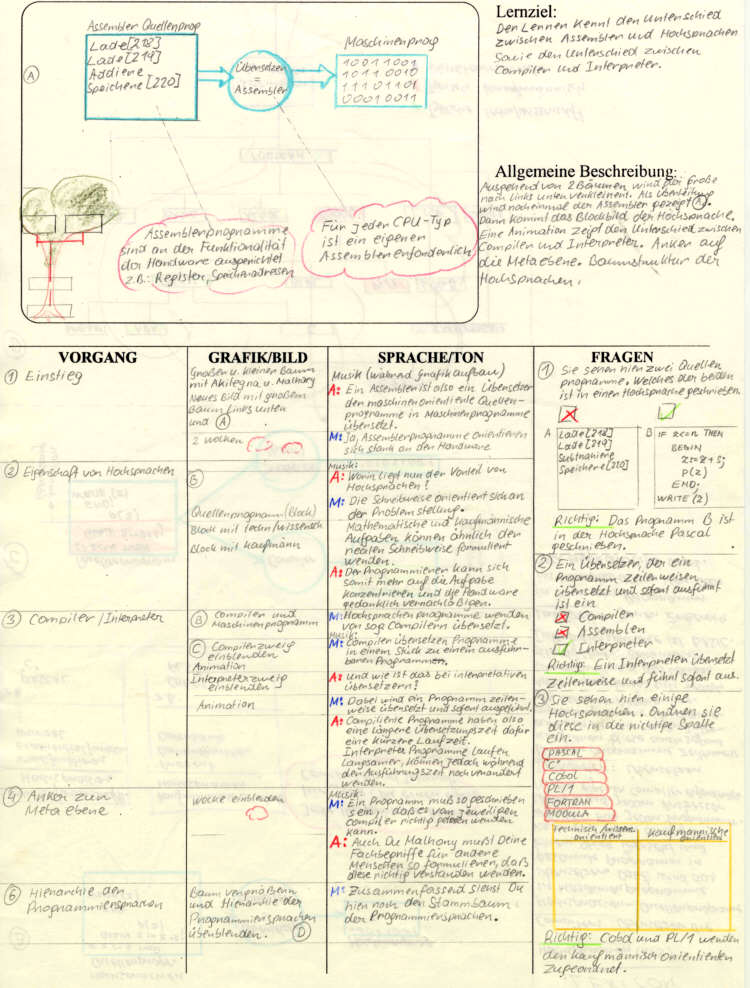 Assembler Quellenprog
Lade[218]
Lade[219]
Addiere
Speichere[220]
Übersetzen
=
Assembler
Maschinenprog
10011001
10110010
11101101
00010011
A
Assemblerprogramme
sind an der Funktionalität
der Hardware ausgerichtet
z.B.: Register, Speicheradressen
Für jeder CPU-Typ
ist ein eigener
Assembler erforderlich
Lernziel:
Der Lerner kennt den Unterschied
zwischen Assembler und Hochsprachen
sowie den Unterschied zwischen
Compiler und Interpreter.
Allgemeine Beschreibung:
Ausgehend von 2 Bäumen wird der große
nach links unten verkleinert. Als Überleitung
wird nocheinmal der Assembler gezeigt A.
Dann kommt das Blockbild der Hochsprache.
Eine Animation zeigt den Unterschied zwischen
Compiler und Interpreter. Anker auf
die Metaebene. Baumstruktur der
Hochsprachen.
VORGANG
1 Einstieg
2 Eigenschaft von Hochsprachen
3 Compiler/Interpreter
4 Anker zur
Metaebene
6 Hierarchie der
Programmiersprachen
GRAFIK/BILD
Großen u. kleinen Baum
mit Akilegna u. Malhory
Neues Bild mit großem
Baum links unten
und A
2 Wolken
B
Quellenprogramm (Block)
Block mit techn/wissensch
Block mit Kaufmänn
B Compiler und
Maschinenprogramm
C Compilerzweig
einblenden
Animation
Interpreterzweig
einblenden
Animation
Wolke einblenden
Baum vergrößern
und Hierarchie der
Programmiersprachen
überblenden. D
SPRACHE/TON
Musik (während Grafikaufbau)
A: Ein Assembler ist also ein Übersetzer
der maschinenorientierte Quellen-
programme in Maschinenprogramme
übersetzt.
M: Ja, Assemblerprogramme orientieren
sich stark an der Hardware
Musik:
A: Worin liegt nun der Vorteil von
Hochsprachen?
M: Die Schreibweise orientiert sich an
der Problemstellung.
Mathematische und kaufmännische
Aufgaben können ähnlich der
realen Schreibweise formuliert
werden.
A: Der Programmierer kann sich
somit mehr auf die Aufgabe
konzentrieren und die Hardware
gedanklich vernachlässigen.
M: Hochsprachen programme werden
von sog Compilern übersetzt.
Musik:
M: Compiler übersetzen Programme
in einem Stück zu einem ausführ-
baren Programmen.
A: und wie ist das bei interpretativen
Übersetzern?
M: Dabei wird ein Programm zeilen-
weise übersetzt und sofort ausgeführt.
A: Compilierte Programme haben also
eine längere Übersetzungszeit dafür
eine kürzere Laufzeit.
Interpreter Programme laufen
langsamer, können jedoch während
der Ausführungszeit noch verändert
werden.
Musik:
M: Ein Programm muß so geschrieben
sein, daß es vom jeweiligen
Compiler richtig gelesen werden
kann.
A: Auch Du Malhony mußt Deine
Fachbegriffe für andere
Menschen so formulieren, daß
diese richtig verstanden werden.
M: Zusammenfassend siehst Du
hier noch den Stammbaum
der Programmiersprachen.
FRAGEN
1 Sie sehen hier zwei Quellen
programme. Welches der beiden
ist in einer Hochsprache geschrieben.
A Lade[218]
Lade[219]
Subtrahiere
Speichere[220]
B IF x<=n THEN
BEGIN
z:=z+s;
P(z)
END;
WRITE(z)
Richtig: Das Programm B ist
in der Hochsprache Pascal
geschrieben.
2 Ein Übersetzer, der ein
Programm zeilenweisen
übersetzt und sofort ausführt
ist ein
Compiler
Assembler
Interpreter
Richtig: Ein Interpreter übersetzt
zeilenweise und führt sofort aus.
3 Sie sehen hier einige
Hochsprachen. Ordnen sie
diese in die richtige Spalte
ein.
PASCAL
C
Cobol
PL/1
FORTRAN
MODULA
technisch/wissen.
orientiert
kaufmännische
orientiert
Richtig: Cobol und PL/1 werden
den kaufmännisch orientierten
zugeordnet.